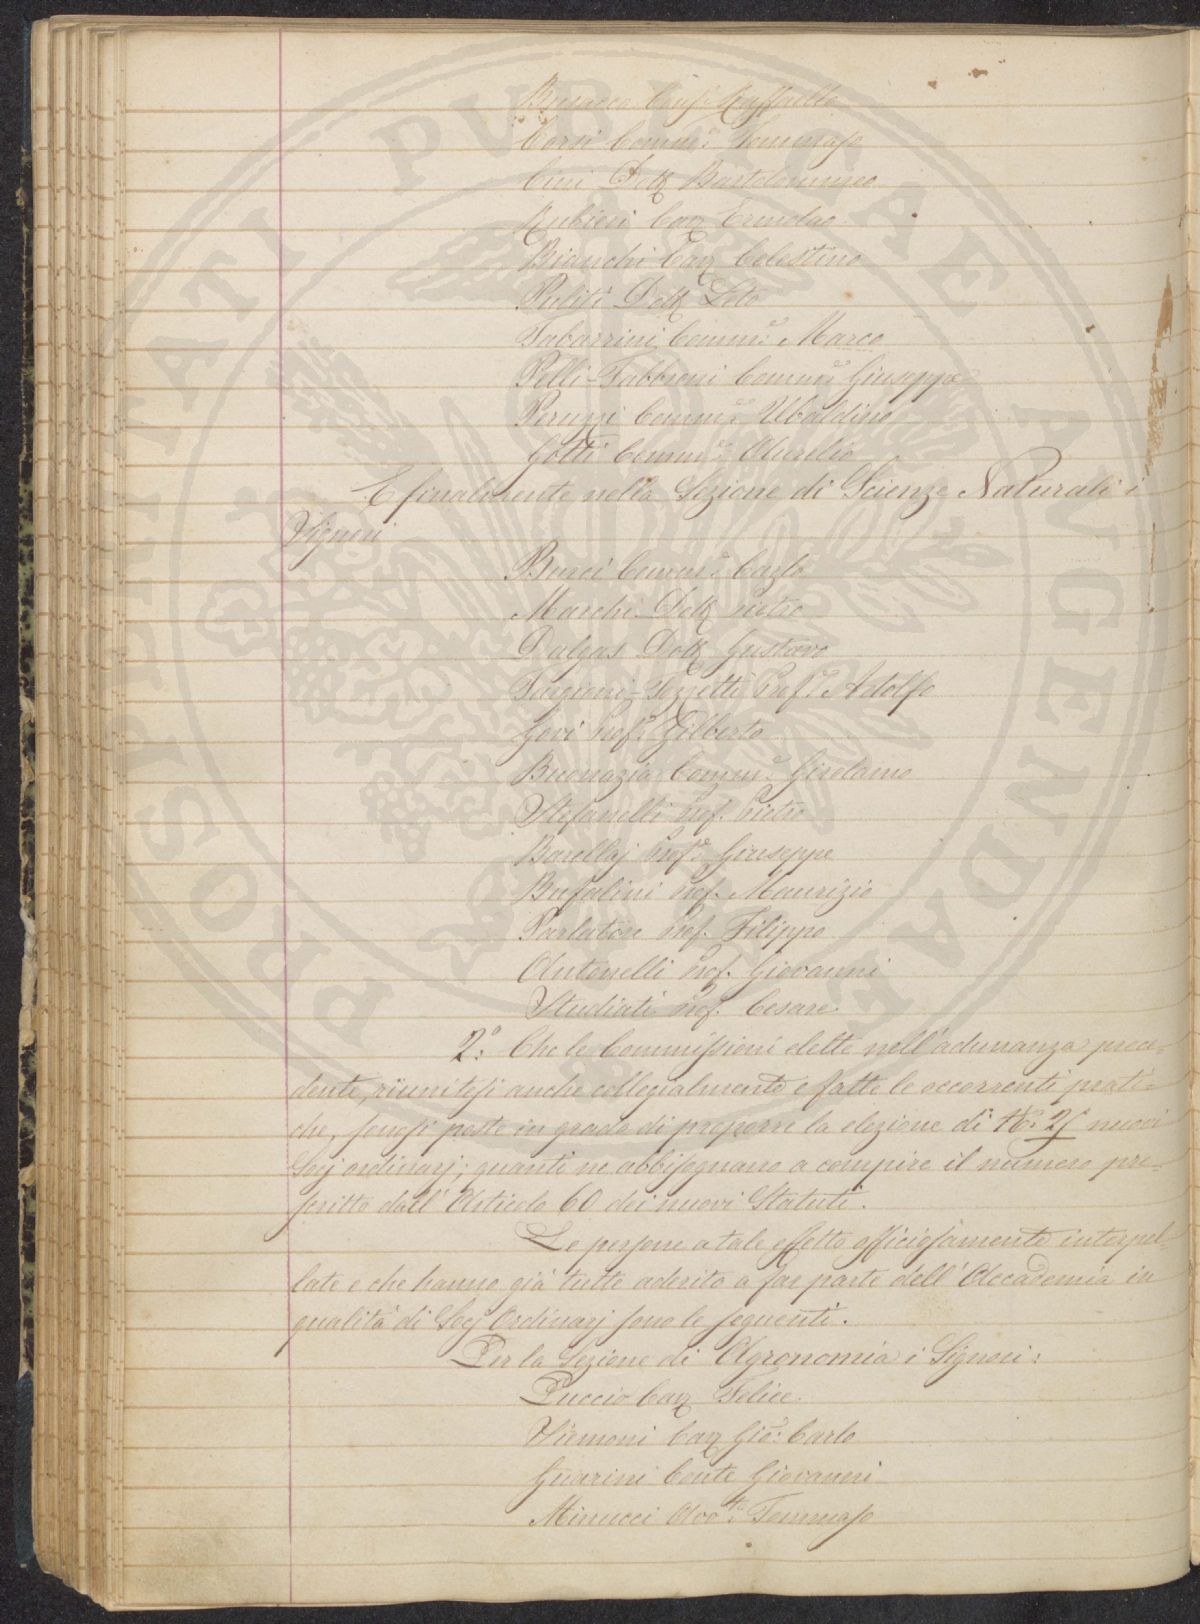 Busacca Cons: Raffaello
Corsi Commre: Tommaso
Cini Dott Bartolommeo
Rubieri Cav Ermolao
Bianchi Cav Celestino
Puliti Dott Leto
Tabarrini Commre: Marco
Pelli-Fabbroni Commre: Giuseppe
Peruzzi Commre: Ubaldino
Gotti Commre: Aurelio
E finalmente nella Sezione di Scienze Naturali i
Signori
Burci Cavre: Carlo
Marchi Dott Pietro
Dalgas Dott Gustavo
Targioni-Tozzetti Profre: Adolfo
Govi Profre: Gilberto
Buonazia Commre: Girolamo
Stefanelli Prof. Pietro
Barellaj Profre: Giuseppe
Bufalini Prof. Maurizio
Parlatore Prof. Filippo
Antonelli Prof. Giovanni
Studiati Prof. Cesare.
2.o Che le Commissioni elette nell'adunanza prece=
dente, riunitesi anche collegialmente e fatte le occorrenti prati=
che, sonosi poste in grado di proporre la elezione di No: 25 nuovi
Socj ordinarj; quanti ne abbisognano a compire il numero pre=
scritto dall'Articolo 60 dei nuovi Statuti.
Le persone a tale effetto officiosamente interpel=
late e che hanno già tutte aderito a far parte dell'Accademia in
qualità di Socj Ordinarj sono le seguenti.
Per la Sezione di Agronomia i Signori:
Puccio Cav Felice
Siemoni Cav Gio: Carlo
Guarini Conte Giovanni
Minucci Avvto: Tommaso